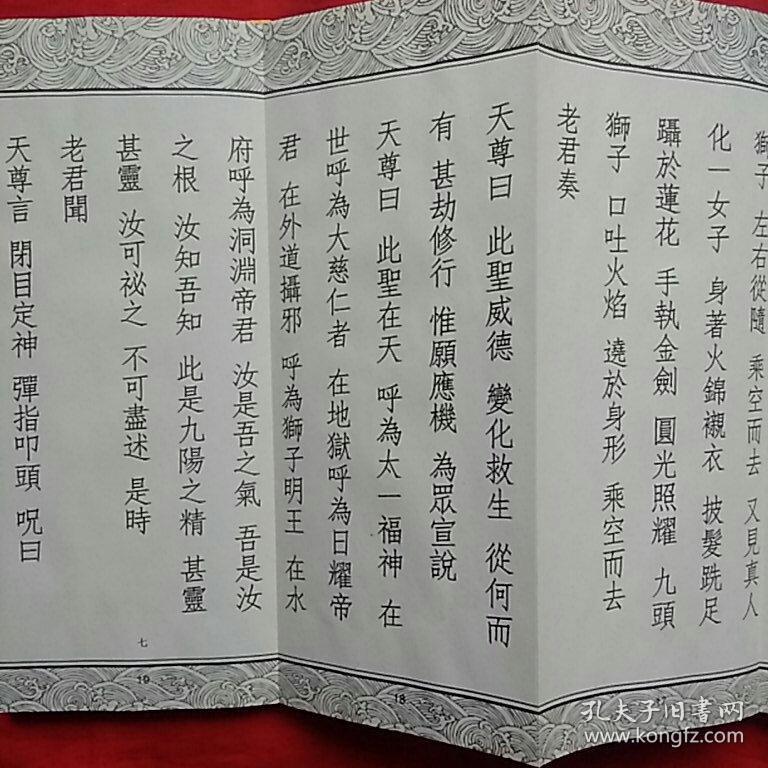 獅子 左右從隨 乘空而去 又見真人
化一女子 身著火錦襯衣 披髮跣足
躡於蓮花 手執金劍 圓光照耀 九頭
獅子 口吐火焰 遶於身形 乘空而去
老君奏
天尊曰 此聖威德 變化救生 從何而
有 甚劫修行 惟願應機 為眾宣說
天尊曰 此聖在天 呼為太一福神 在
世呼為大慈仁者 在地獄呼為日耀帝
君 在外道攝邪 呼為獅子明王 在水
府呼為洞淵帝君 汝是吾之氣 吾是汝
之根 汝知吾知 此是九陽之精 甚靈
甚靈 汝可祕之 不可盡述 是時
老君聞
天尊言 閉目定神 彈指叩頭 咒曰
七
18
19
孔夫子旧書网
www.kongfz.com